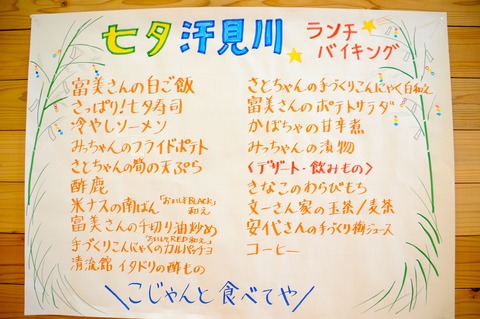 七夕 汗見川 ランチバイキング
富美さんの白ご飯
さっぱり!七夕寿司
冷やしソーメン
みっちゃんのフライドポテト
さとちゃんの筍の天ぷら
酢鹿
米ナスの南ばん「おおいしぞBLACK」和え
富美さんの千切り油炒め
手づくりこんにゃくのカルパッチョ「おいしぞRED和え」
清流館 イタドリの酢もの
さとちゃんの手づくりこんにゃく白和え
富美さんのポテトサラダ
かぼちゃの甘辛煮
みっちゃんの漬物
〈デザート・飲みもの〉
きなこのわらびもち
文一さん家の玉茶/麦茶
安代さんの手づくり梅ジュース
コーヒー
\こじゃんと食べてや/